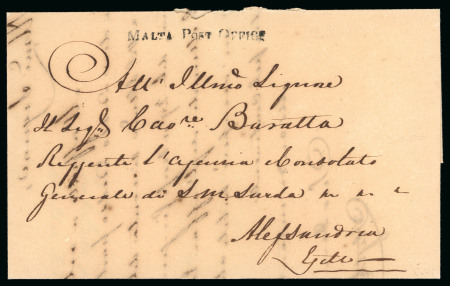 MALTA POST OFFICE
All' Illmo Signore
Il Sigr. Cavre. Buratta
Reggente l'Agenzia e Consolato
Generale di S.M. Sarda
Alessandria
Egitto